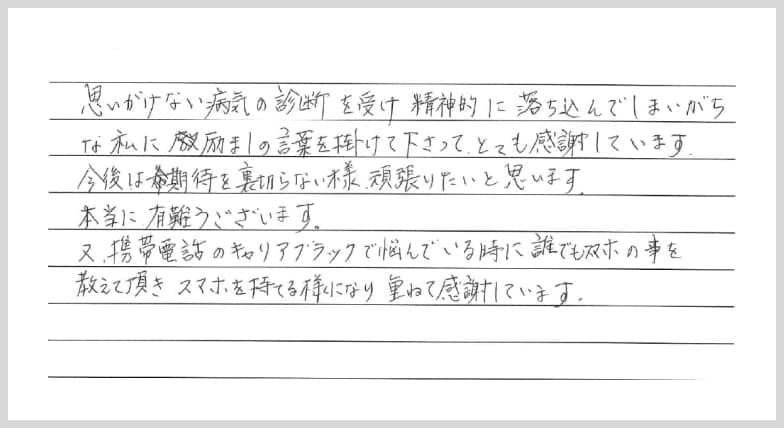 思いがけない病気の診断を受け精神的に落ち込んでしまいがち
な私に励ましの言葉を掛けて下さって、とても感謝しています。
今後は期待を裏切らない様、頑張りたいと思います。
本当に有難うございます。
又、携帯電話のキャリアブラックで悩んでいる時に誰でもスマホの事を
教えて頂きスマホを持てる様になり重ねて感謝しています。